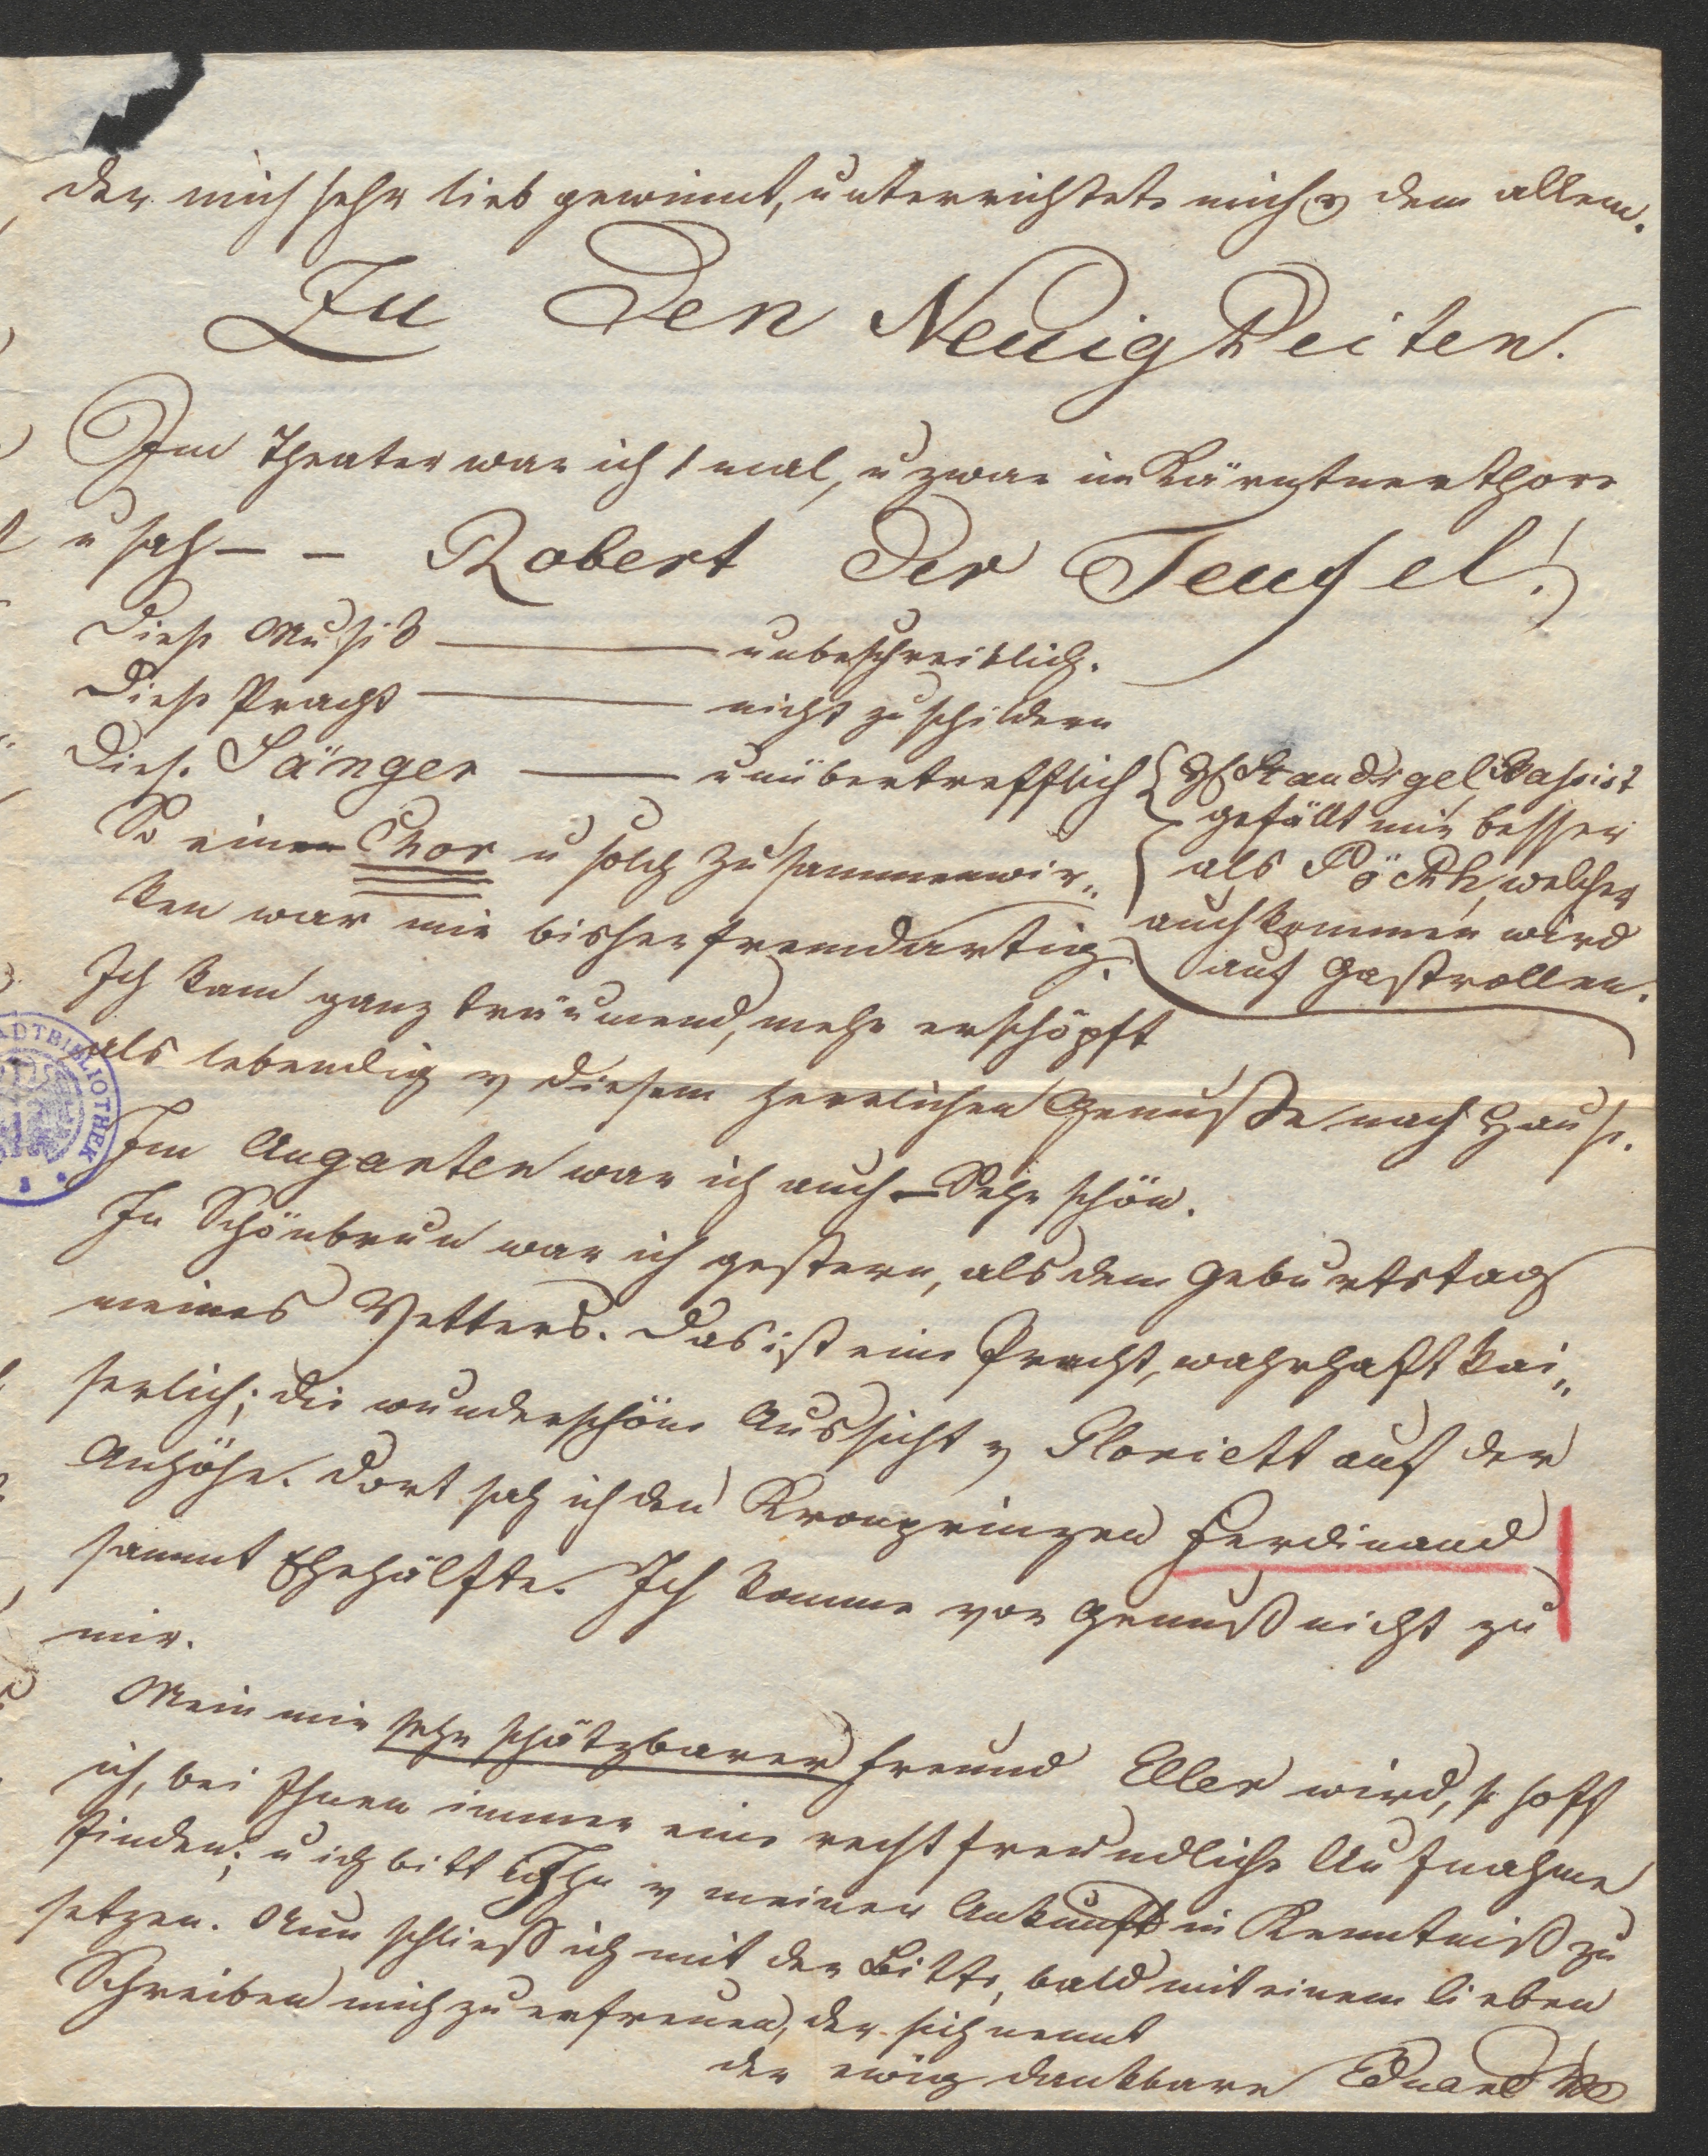 der mich sehr lieb gewinnt, unterrichtete mich v dem allem.
Zu den Neuigkeiten.
Im Theater war ich 1 mal, u zwar im Kärnthnerthore
u sah — — Robert der Teufel!
Diese Musik ——— unbeschreiblich.
Diese Pracht ——— nicht zu schildern
Diese Sänger ——— unübertrefflich
So einen Chor u solch Zusammenwir„
ken war mir bisher fremdartig.
H Staudigel, Bassist
gefällt mir besser
als Pöck, welcher
auch kommen wird
auf Gastrollen.
Ich kam ganz träumend, mehr erschöpft
als lebendig v diesem herrlichen Genusse nach Hause.
Im Augarten war ich auch — Sehr schön.
In Schönbrun war ich gestern, als dem Geburtstag
meines Vetters. Das ist eine Pracht, wahrhaft kai„
serlich; die wunderschöne Aussicht v Gloriett auf der
Anhöhe. Dort sah ich den Kronprinzen Ferdinand
sammt Ehehälfte. Ich komme vor Genuß nicht zu
mir.
Mein mir sehr schätzbarer Freund Eller wird, so hoff
ich, bei Ihnen immer eine recht freundliche Aufnahme
finden; u ich bitt Ihn v meiner Ankunft in Kenntniß zu
setzen. Nun schließ ich mit der Bitte, bald mit einem lieben
Schreiben mich zu erfreuen, der sich nennt
der ewig dankbare Eduard
STADTBIBLIOTHEK